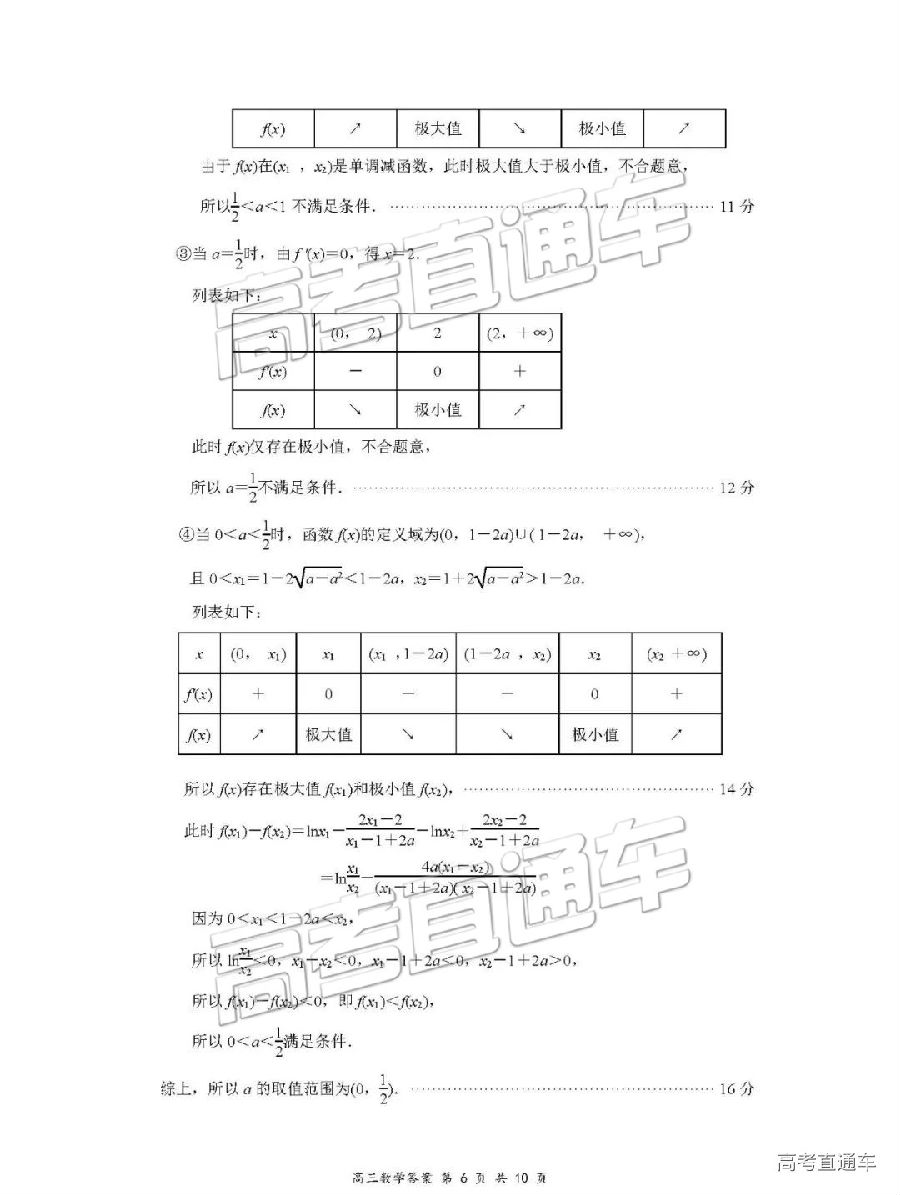 f(x) ↗ 极大值 ↘ 极小值 ↗
由于 f(x)在(x₁ ，x₂)是单调减函数，此时极大值大于极小值，不合题意，
所以1/2＜a＜1 不满足条件．…………11 分
③当 a＝1/2时，由 f ′(x)＝0，得 x＝2.
列表如下：
x (0， 2) 2 (2，＋∞)
f′(x) － 0 ＋
f(x) ↘ 极小值 ↗
此时 f(x)仅存在极小值，不合题意，
所以 a＝1/2不满足条件．…………12 分
④当 0＜a＜1/2时，函数 f(x)的定义域为(0，1－2a)∪(1－2a， ＋∞)，
且 0＜x₁＝1－2√(a－a²)＜1－2a，x₂＝1＋2√(a－a²)＞1－2a.
列表如下：
x (0， x₁) x₁ (x₁ ,1－2a) (1－2a ，x₂) x₂ (x₂ ＋∞)
f′(x) ＋ 0 － － 0 ＋
f(x) ↗ 极大值 ↘ ↘ 极小值 ↗
所以 f(x)存在极大值 f(x₁)和极小值 f(x₂)，…………14 分
此时 f(x₁)－f(x₂)＝lnx₁－(2x₁－2)/(x₁－1＋2a)－lnx₂＋(2x₂－2)/(x₂－1＋2a)
＝ln(x₁/x₂)－4a(x₁－x₂)/((x₁－1＋2a)(x₂－1＋2a))
因为 0＜x₁＜1－2a＜x₂，
所以 ln(x₁/x₂)＜0，x₁－x₂＜0，x₁－1＋2a＜0，x₂－1＋2a＞0，
所以 f(x₁)－f(x₂)＜0，即 f(x₁)＜f(x₂)，
所以 0＜a＜1/2满足条件．
综上，所以 a 的取值范围为(0，1/2)．…………16 分
高三数学答案 第 6 页 共 10 页
高考直通车
高考直通车
高考直通车